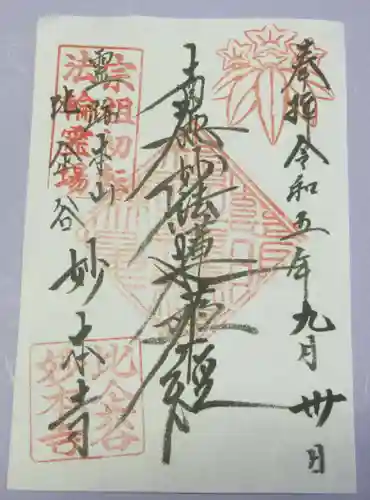 奉拝 令和五年九月卅日
南無妙法蓮華経
霊跡本山
比企谷 妙本寺
宗祖初転
法輪霊場
比企谷
妙本寺